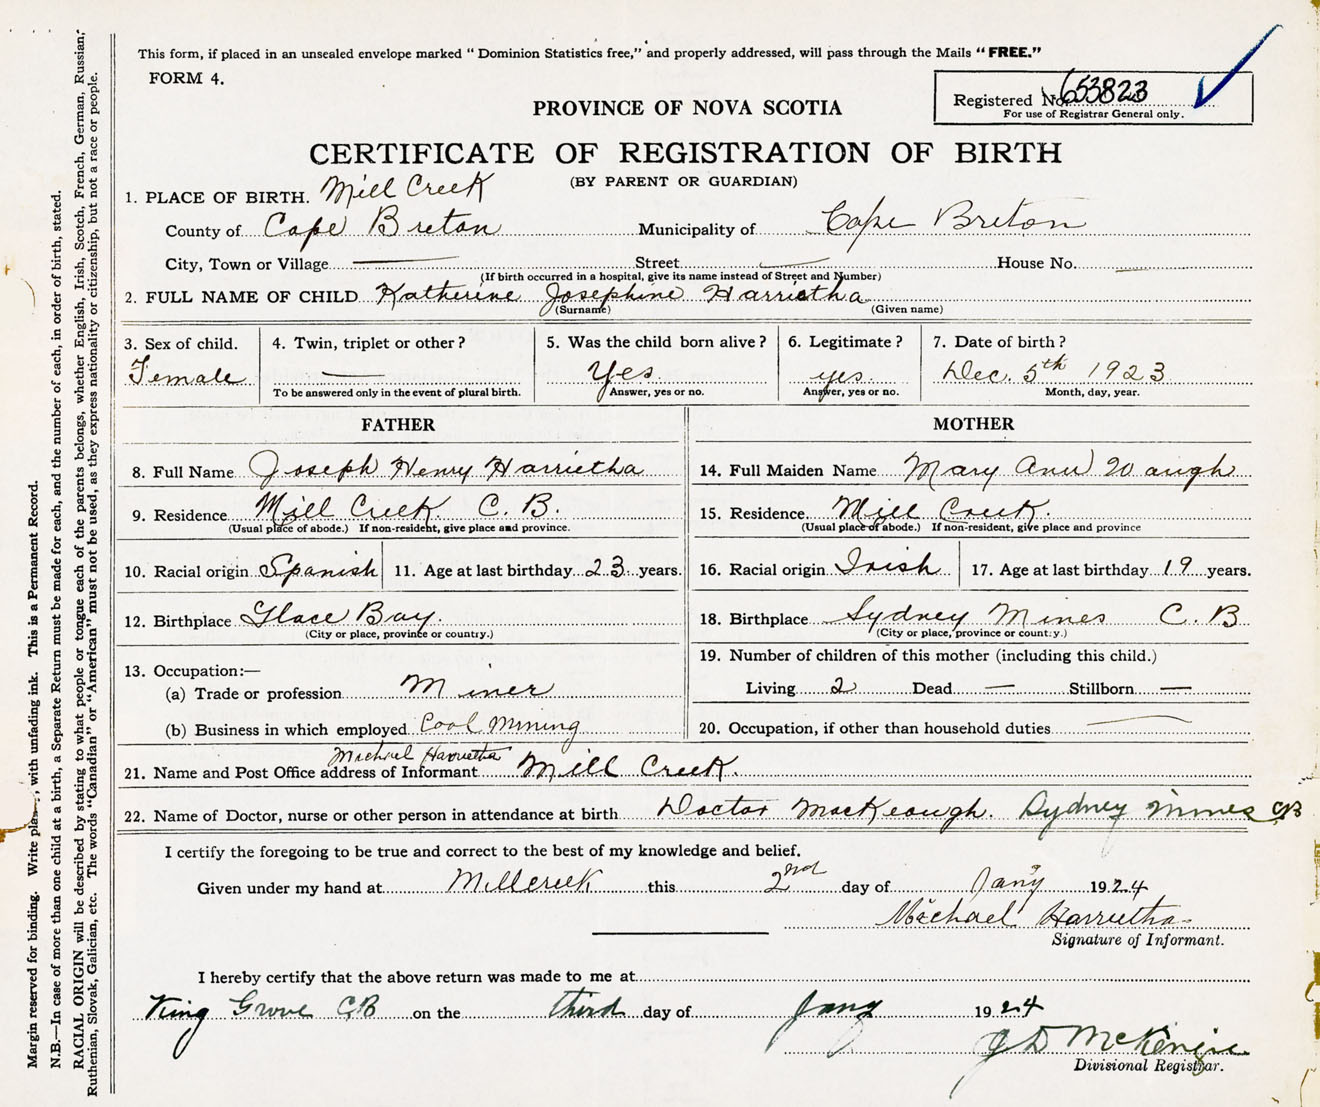 This form, if placed in an unsealed envelope marked "Dominion Statistics free," and properly addressed, will pass through the Mails "FREE."
FORM 4.
Registered No. 653823
For use of Registrar General only.
PROVINCE OF NOVA SCOTIA
CERTIFICATE OF REGISTRATION OF BIRTH
(BY PARENT OR GUARDIAN)
1. PLACE OF BIRTH. Mill Creek
County of Cape Breton Municipality of Cape Breton
City, Town or Village — Street — House No. —
(If birth occurred in a hospital, give its name instead of Street and Number)
2. FULL NAME OF CHILD Katherine Josephine Harrietha
(Surname) (Given name)
3. Sex of child. 4. Twin, triplet or other? 5. Was the child born alive? 6. Legitimate? 7. Date of birth?
Female — Yes yes. Dec. 5th 1923
To be answered only in the event of plural birth. Answer, yes or no. Answer, yes or no. Month, day, year.
FATHER MOTHER
8. Full Name Joseph Henry Harrietha
14. Full Maiden Name Mary Ann Waugh
9. Residence Mill Creek C. B.
(Usual place of abode.) If non-resident, give place and province.
15. Residence. Mill Creek.
(Usual place of abode.) If non-resident, give place and province
10. Racial origin Spanish 11. Age at last birthday 23 years.
16. Racial origin Irish 17. Age at last birthday 19 years.
12. Birthplace Glace Bay.
(City or place, province or country.)
18. Birthplace Sydney Mines C. B
(City or place, province or country.)
13. Occupation:—
(a) Trade or profession Miner
(b) Business in which employed Coal Mining
19. Number of children of this mother (including this child.)
Living 2 Dead — Stillborn —
20. Occupation, if other than household duties —
Michael Harrietha
21. Name and Post Office address of Informant Mill Creek.
22. Name of Doctor, nurse or other person in attendance at birth Doctor MacKeough. Sydney Mines CB
I certify the foregoing to be true and correct to the best of my knowledge and belief.
Given under my hand at Millcreek this 2nd day of Jany 1924
Michael Harrietha
Signature of Informant.
I hereby certify that the above return was made to me at
King Grove CB on the third day of Jany 1924
J D McKenzie
Divisional Registrar.
Margin reserved for binding. Write , with unfading ink. This is a Permanent Record.
N.B.—In case of more than one child at a birth, a Separate Return must be made for each, and the number of each, in order of birth, stated.
RACIAL ORIGIN will be described by stating to what people or tongue each of the parents belongs, whether English, Irish, Scotch, French, German, Russian,
Ruthenian, Slovak, Galician, etc. The words "Canadian" or "American" must not be used, as they express nationality or citizenship, but not a race or people.